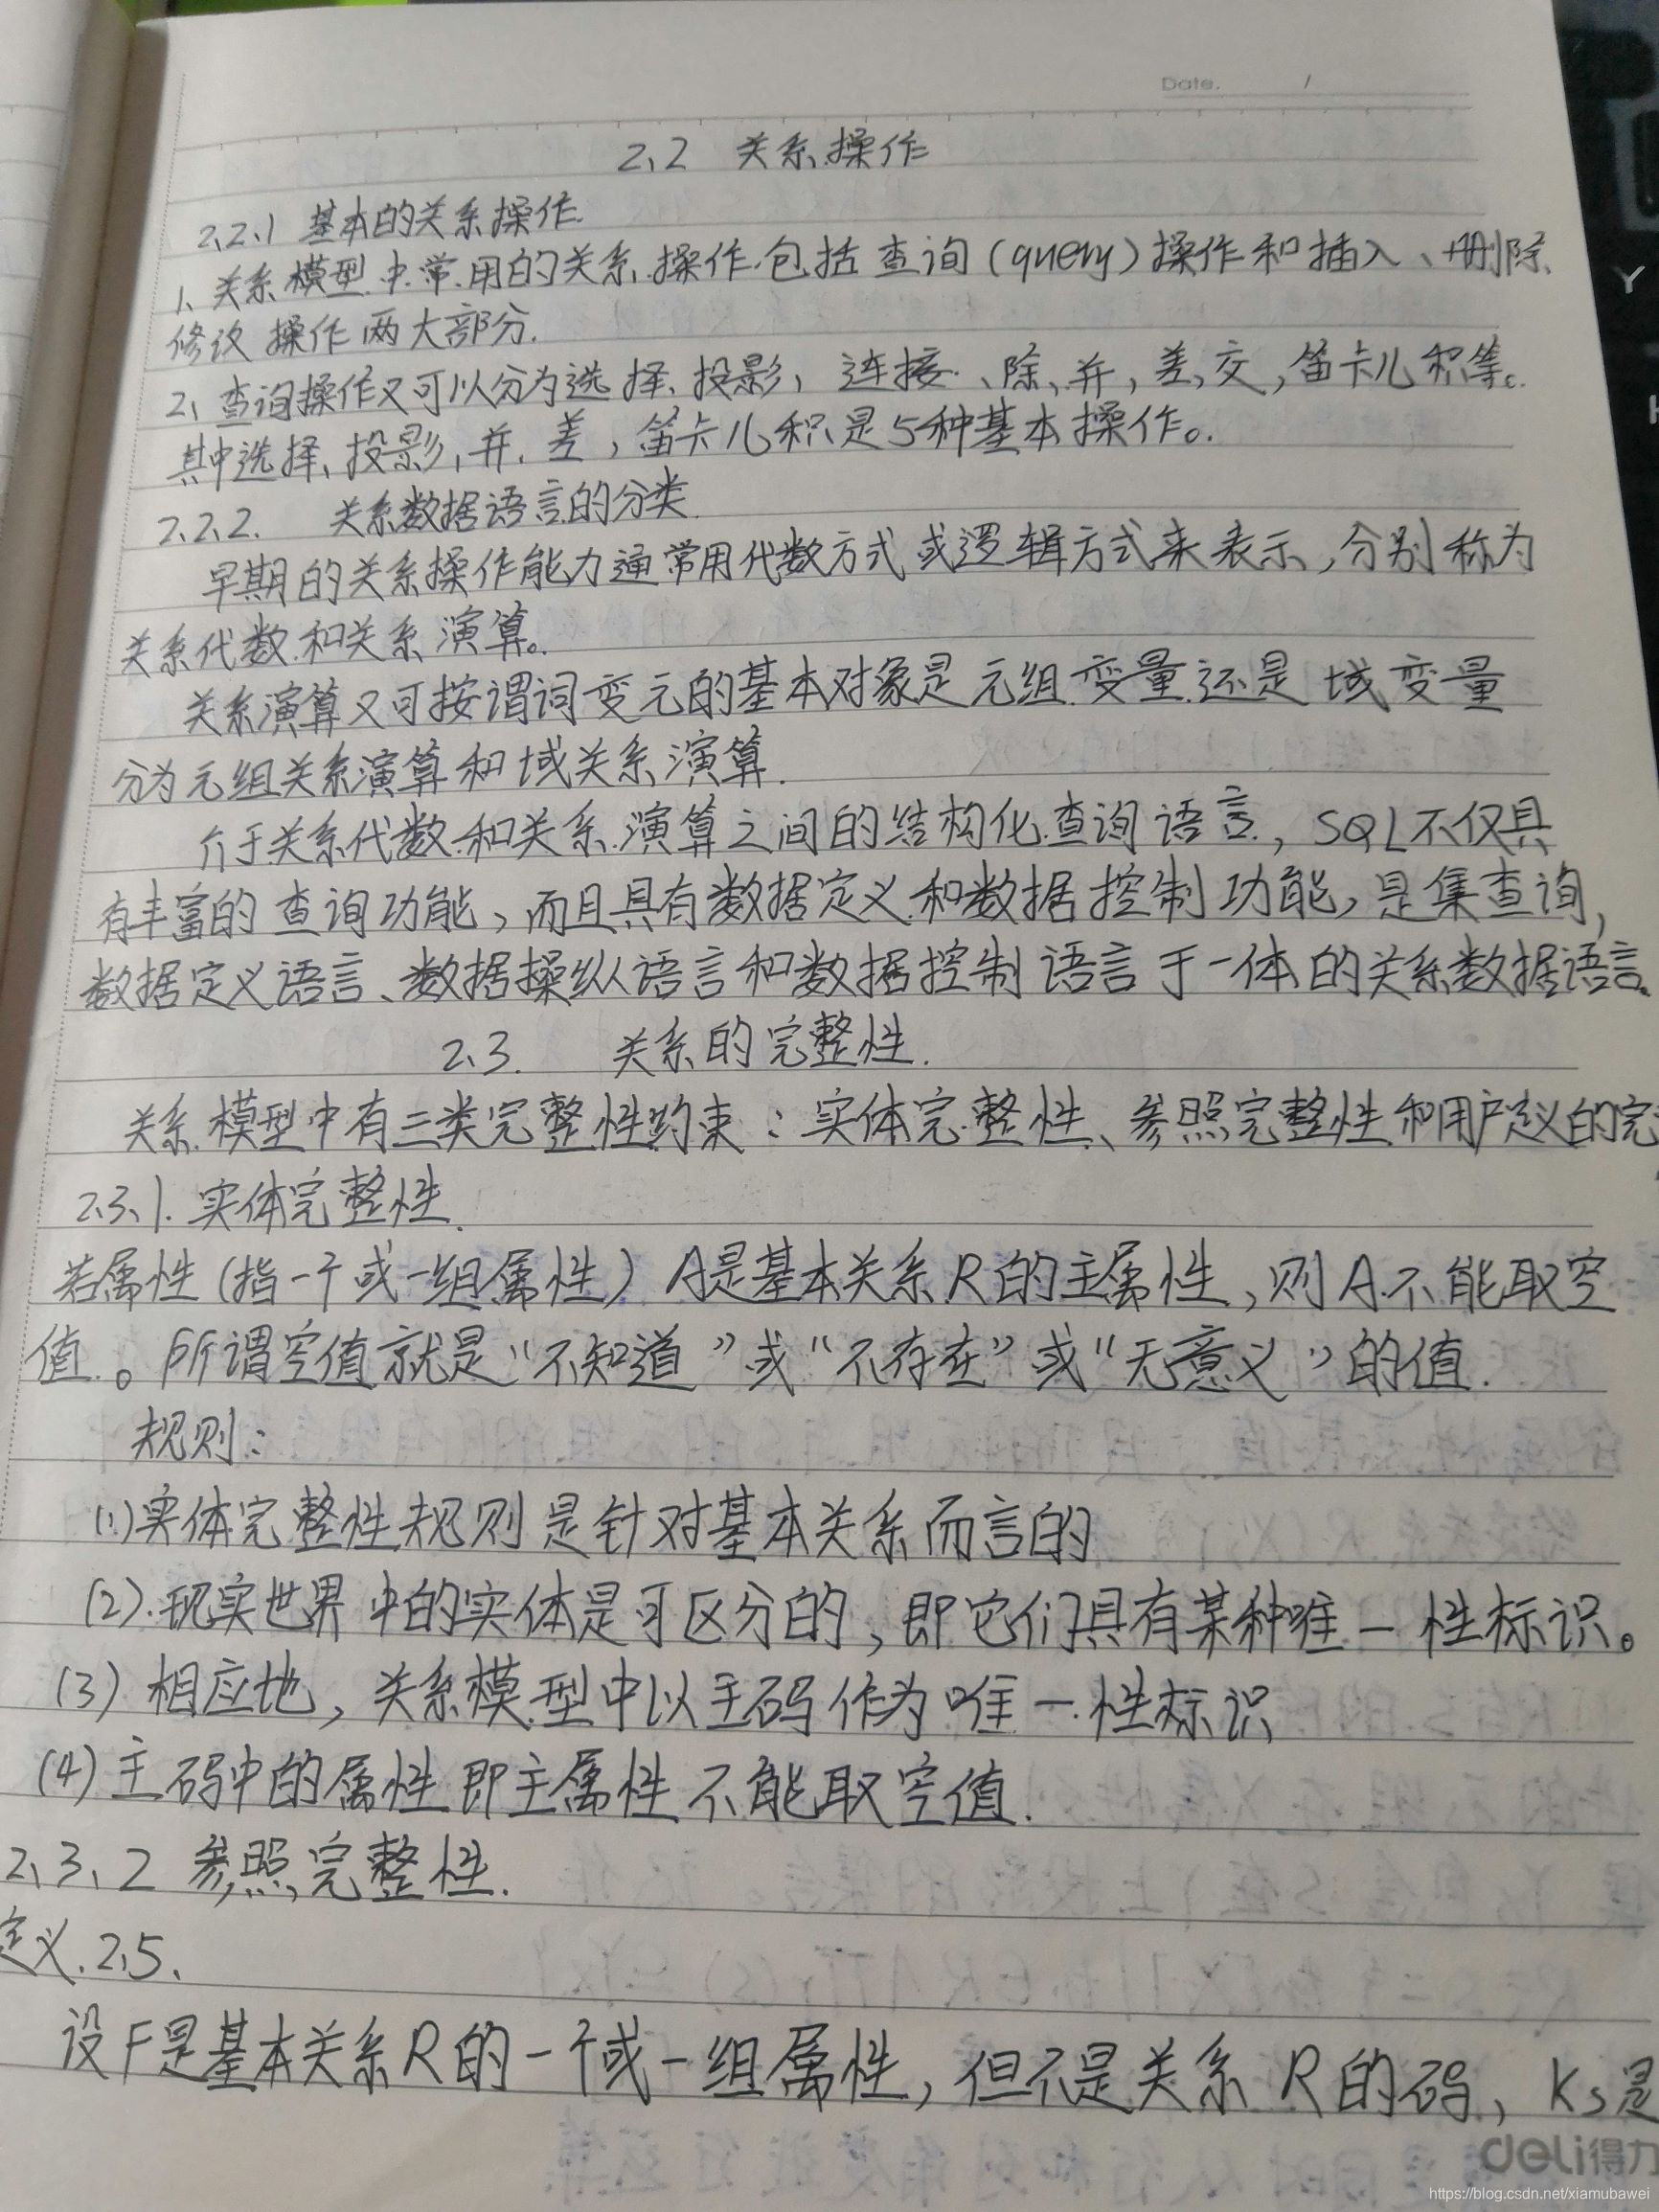 Date. /
2、2 关系操作
2、2、1 基本的关系操作.
1、关系模型中常用的关系操作包括查询(query)操作和插入、删除、
修改操作两大部分.
2、查询操作又可以分为选择、投影、连接、除、并,差,交,笛卡儿积等。
其中选择、投影,并、差,笛卡儿积是5种基本操作。
2、2、2. 关系数据语言的分类.
早期的关系操作能力通常用代数方式或逻辑方式来表示,分别称为
关系代数和关系演算。
关系演算又可按谓词变元的基本对象是元组变量还是域变量
分为元组关系演算和域关系演算.
介于关系代数和关系演算之间的结构化查询语言,SQL不仅具
有丰富的查询功能,而且具有数据定义和数据控制功能,是集查询,
数据定义语言、数据操纵语言和数据控制语言于一体的关系数据语言。
2、3. 关系的完整性.
关系模型中有三类完整性约束:实体完整性、参照完整性和用户定义的完
2、3、1. 实体完整性.
若属性(指一个或一组属性)A是基本关系R的主属性,则A不能取空
值。所谓空值就是“不知道”或“不存在”或“无意义”的值.
规则:
(1)实体完整性规则是针对基本关系而言的
(2).现实世界中的实体是可区分的,即它们具有某种唯一性标识。
(3)相应地,关系模型中以主码作为唯一性标识
(4)主码中的属性即主属性不能取空值.
2、3、2 参照完整性.
定义.2、5、
设F是基本关系R的一个或一组属性,但不是关系R的码,Ks是
deli得力
https://blog.csdn.net/xiamubawei